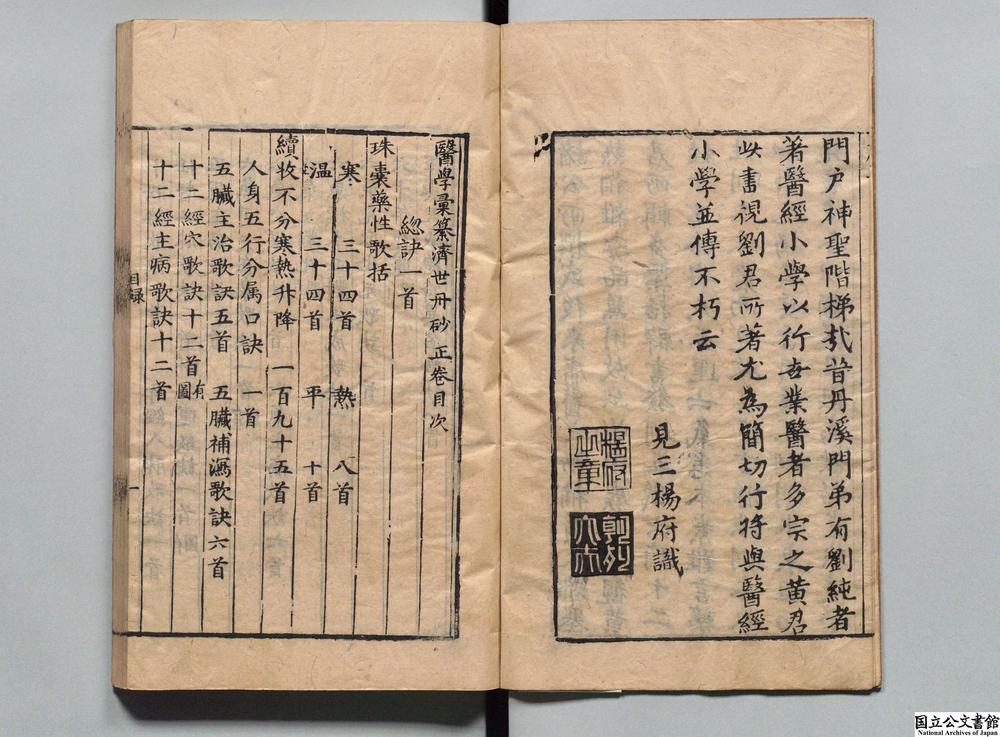 門戶神聖階梯哉昔丹溪門弟有劉純者
著醫經小學以行世業醫者多宗之黃君
此書視劉君所著尤為簡切行將與醫經
小學並傳不朽云
見三楊府識
楊府之章
醫學彙纂濟世丹砂正卷目次
緫訣一首
珠囊藥性歌括
寒 三十四首 熱 八首
温 三十四首 平 十首
續收不分寒熱升降 一百九十五首
人身五行分属口訣 一首
五臟主治歌訣五首 五臟補瀉歌訣六首
十二經穴歌訣十二首有圖
十二經主病歌訣十二首
目録
一
国立公文書館
National Archives of Japan